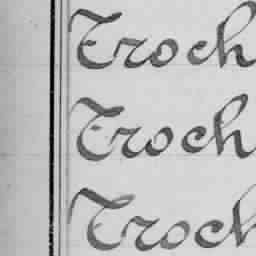 Troch
Troch
Troch